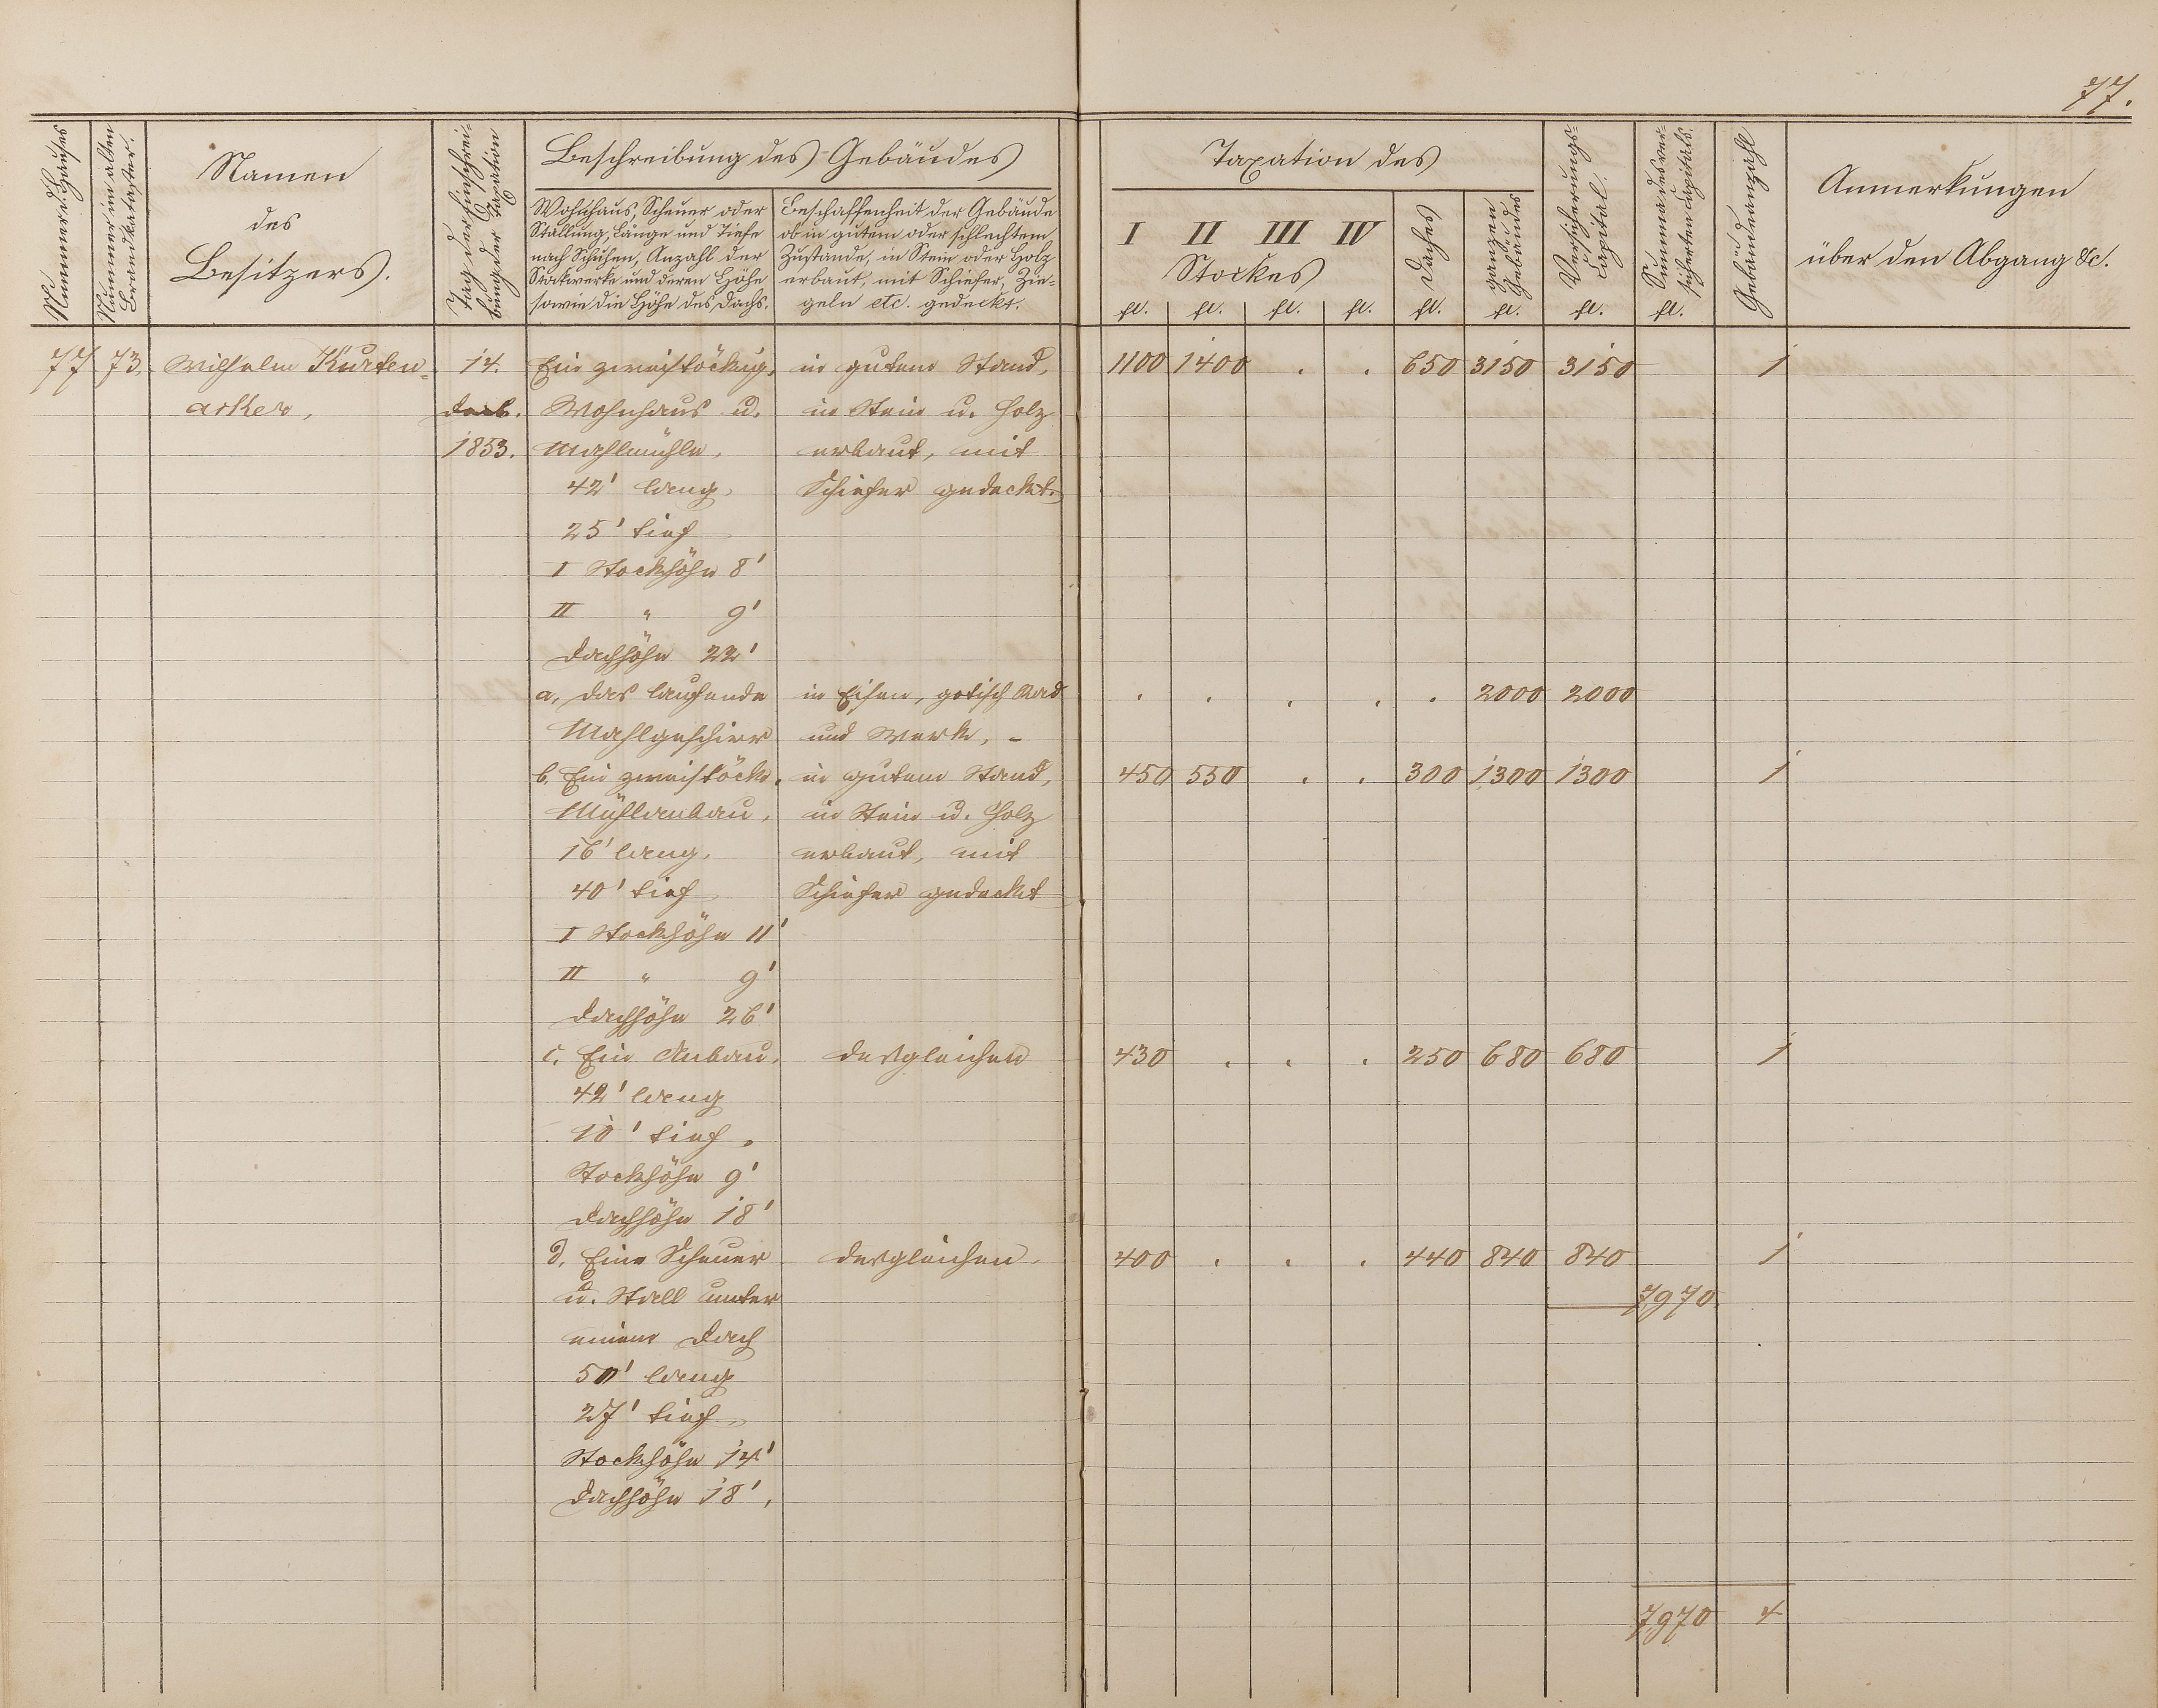 77.
№ Nummer d. Hauses
Nummer im alten Brandkataster.
Namen
des
Besitzers.
Tag der Einschreibung der Taxation
Beschreibung des Gebäudes
Wohnhaus, Scheuer oder
Stallung, Länge und Tiefe
nach Schuhen, Anzahl der
Stockwerke und deren Höhe
sowie die Höhe des Dachs.
Beschaffenheit der Gebäude
ob in gutem oder schlechtem
Zustande, in Stein oder Holz
erbaut, mit Schiefer, Zie-
geln etc. gedeckt.
Taxation des
I II III IV
Stockes
Daches
ganzen Gebäudes
Versicherungs-Capital.
Summa des versicherten Capitals.
Gebäudeanzahl
Anmerkungen
über den Abgang &c.
fl. fl. fl. fl. fl. fl. fl. fl.
77 73. Wilhelm Kurten- 14. Ein zweistöckig. in gutem Stand, 1100 1400 . . 650 3150 3150 1
acker, Wohnhaus u. in Stein u. Holz
1853. Mahlmühle, erbaut, mit
42' lang, Schiefer gedeckt.
25' tief
I Stockhöhe 8'
II " 9'
Dachhöhe 22'
a, das laufende in Eisen, Rad . . . . . 2000 2000
Mahlgeschirr und Werk, -
b. Ein zweistöck. in gutem Stand, 450 550 . . 300 1300 1300 1
Mühlanbau, in Stein u. Holz
16' lang, erbaut, mit
40' tief Schiefer gedeckt
I Stockhöhe 11'
II " 9'
Dachhöhe 26'
c. Ein Anbau, desgleichen 430 . . . 250 680 680 1
42' lang
10' tief,
Stockhöhe 9'
Dachhöhe 18'
d. Eine Scheuer desgleichen, 400 . . . 440 840 840 1
u. Stall unter 7970
einem Dach
50' lang
27' tief,
Stockhöhe 14'
Dachhöhe 18',
7970 4